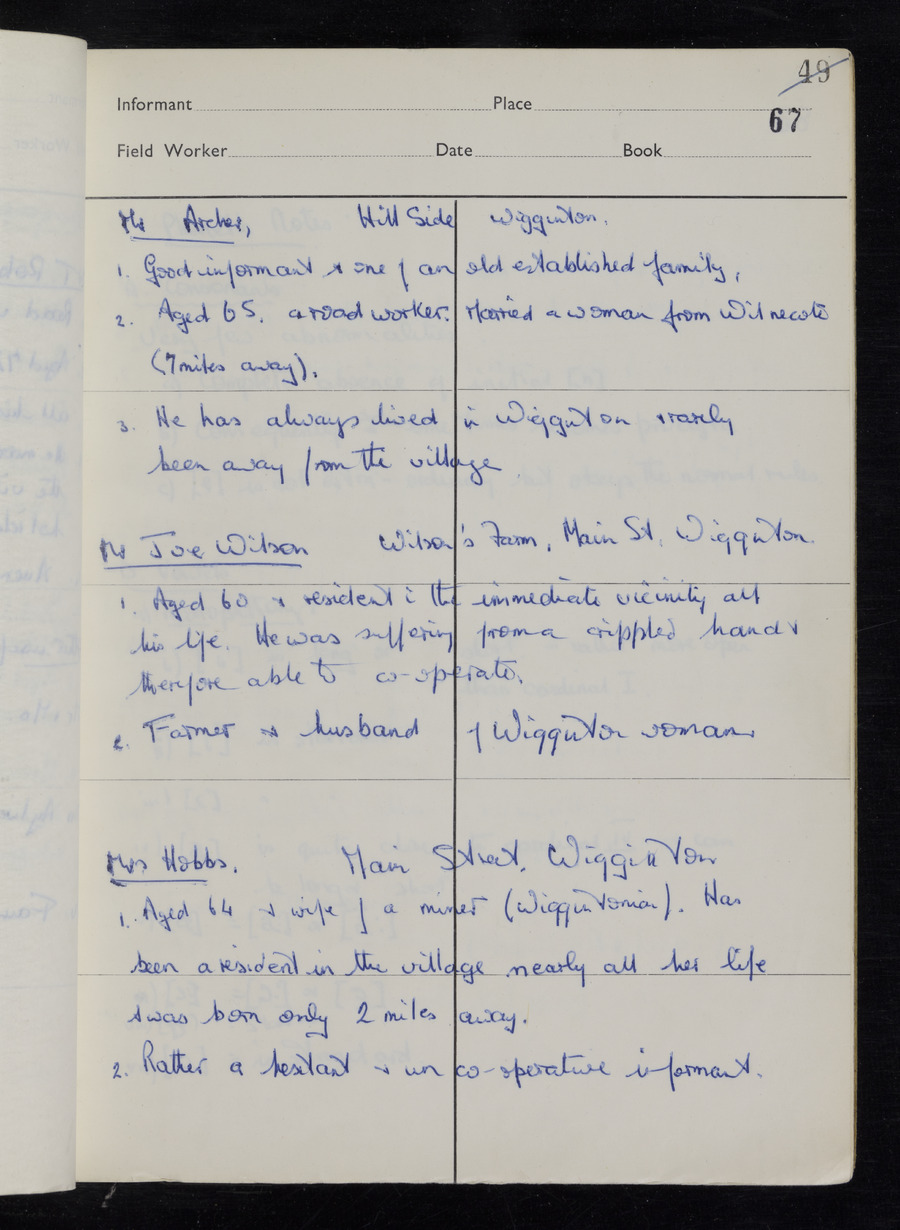 49
Informant Place
67
Field Worker Date Book
Mr Archer, Hill Side Wigginton.
1. Good informant & one of an old established family.
2. Aged 65. a road worker. Married a woman from Wilnecote
(7 miles away).
3. He has always lived in Wigginton & rarely
been away from the village.
Mr Joe Wilson Wilson's Farm, Main St, Wigginton.
1. Aged 60 & resident in the immediate vicinity all
his life. He was suffering from a crippled hand &
therefore able to co-operate.
2. Farmer & husband of Wigginton woman.
Mrs Hobbs. Main Street, Wigginton
1. Aged 64 & wife of a miner (Wiggintonian). Has
been a resident in the village nearly all her life
& was born only 2 miles away.
2. Rather a hesitant & un co-operative informant.